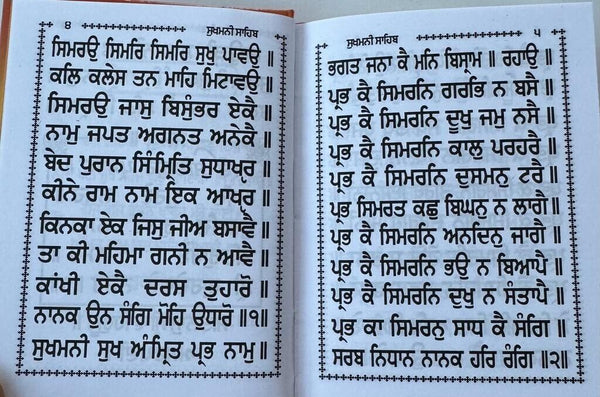 ੪
ਸੁਖਮਨੀ ਸਾਹਿਬ
ਸਿਮਰਉ ਸਿਮਰਿ ਸਿਮਰਿ ਸੁਖੁ ਪਾਵਉ ॥
ਕਲਿ ਕਲੇਸ ਤਨ ਮਾਹਿ ਮਿਟਾਵਉ ॥
ਸਿਮਰਉ ਜਾਸੁ ਬਿਸੁੰਭਰ ਏਕੈ ॥
ਨਾਮੁ ਜਪਤ ਅਗਨਤ ਅਨੇਕੈ ॥
ਬੇਦ ਪੁਰਾਨ ਸਿੰਮ੍ਰਿਤਿ ਸੁਧਾਖੵਰ ॥
ਕੀਨੇ ਰਾਮ ਨਾਮ ਇਕ ਆਖੵਰ ॥
ਕਿਨਕਾ ਏਕ ਜਿਸੁ ਜੀਅ ਬਸਾਵੈ ॥
ਤਾ ਕੀ ਮਹਿਮਾ ਗਨੀ ਨ ਆਵੈ ॥
ਕਾਂਖੀ ਏਕੈ ਦਰਸ ਤੁਹਾਰੋ ॥
ਨਾਨਕ ਉਨ ਸੰਗਿ ਮੋਹਿ ਉਧਾਰੋ ॥੧॥
ਸੁਖਮਨੀ ਸੁਖ ਅੰਮ੍ਰਿਤ ਪ੍ਰਭ ਨਾਮੁ ॥
ਸੁਖਮਨੀ ਸਾਹਿਬ
੫
ਭਗਤ ਜਨਾ ਕੈ ਮਨਿ ਬਿਸ੍ਰਾਮ ॥ ਰਹਾਉ ॥
ਪ੍ਰਭ ਕੈ ਸਿਮਰਨਿ ਗਰਭਿ ਨ ਬਸੈ ॥
ਪ੍ਰਭ ਕੈ ਸਿਮਰਨਿ ਦੂਖੁ ਜਮੁ ਨਸੈ ॥
ਪ੍ਰਭ ਕੈ ਸਿਮਰਨਿ ਕਾਲੁ ਪਰਹਰੈ ॥
ਪ੍ਰਭ ਕੈ ਸਿਮਰਨਿ ਦੁਸਮਨੁ ਟਰੈ ॥
ਪ੍ਰਭ ਸਿਮਰਤ ਕਛੁ ਬਿਘਨੁ ਨ ਲਾਗੈ ॥
ਪ੍ਰਭ ਕੈ ਸਿਮਰਨਿ ਅਨਦਿਨੁ ਜਾਗੈ ॥
ਪ੍ਰਭ ਕੈ ਸਿਮਰਨਿ ਭਉ ਨ ਬਿਆਪੈ ॥
ਪ੍ਰਭ ਕੈ ਸਿਮਰਨਿ ਦੁਖੁ ਨ ਸੰਤਾਪੈ ॥
ਪ੍ਰਭ ਕਾ ਸਿਮਰਨੁ ਸਾਧ ਕੈ ਸੰਗਿ ॥
ਸਰਬ ਨਿਧਾਨ ਨਾਨਕ ਹਰਿ ਰੰਗਿ ॥੨॥